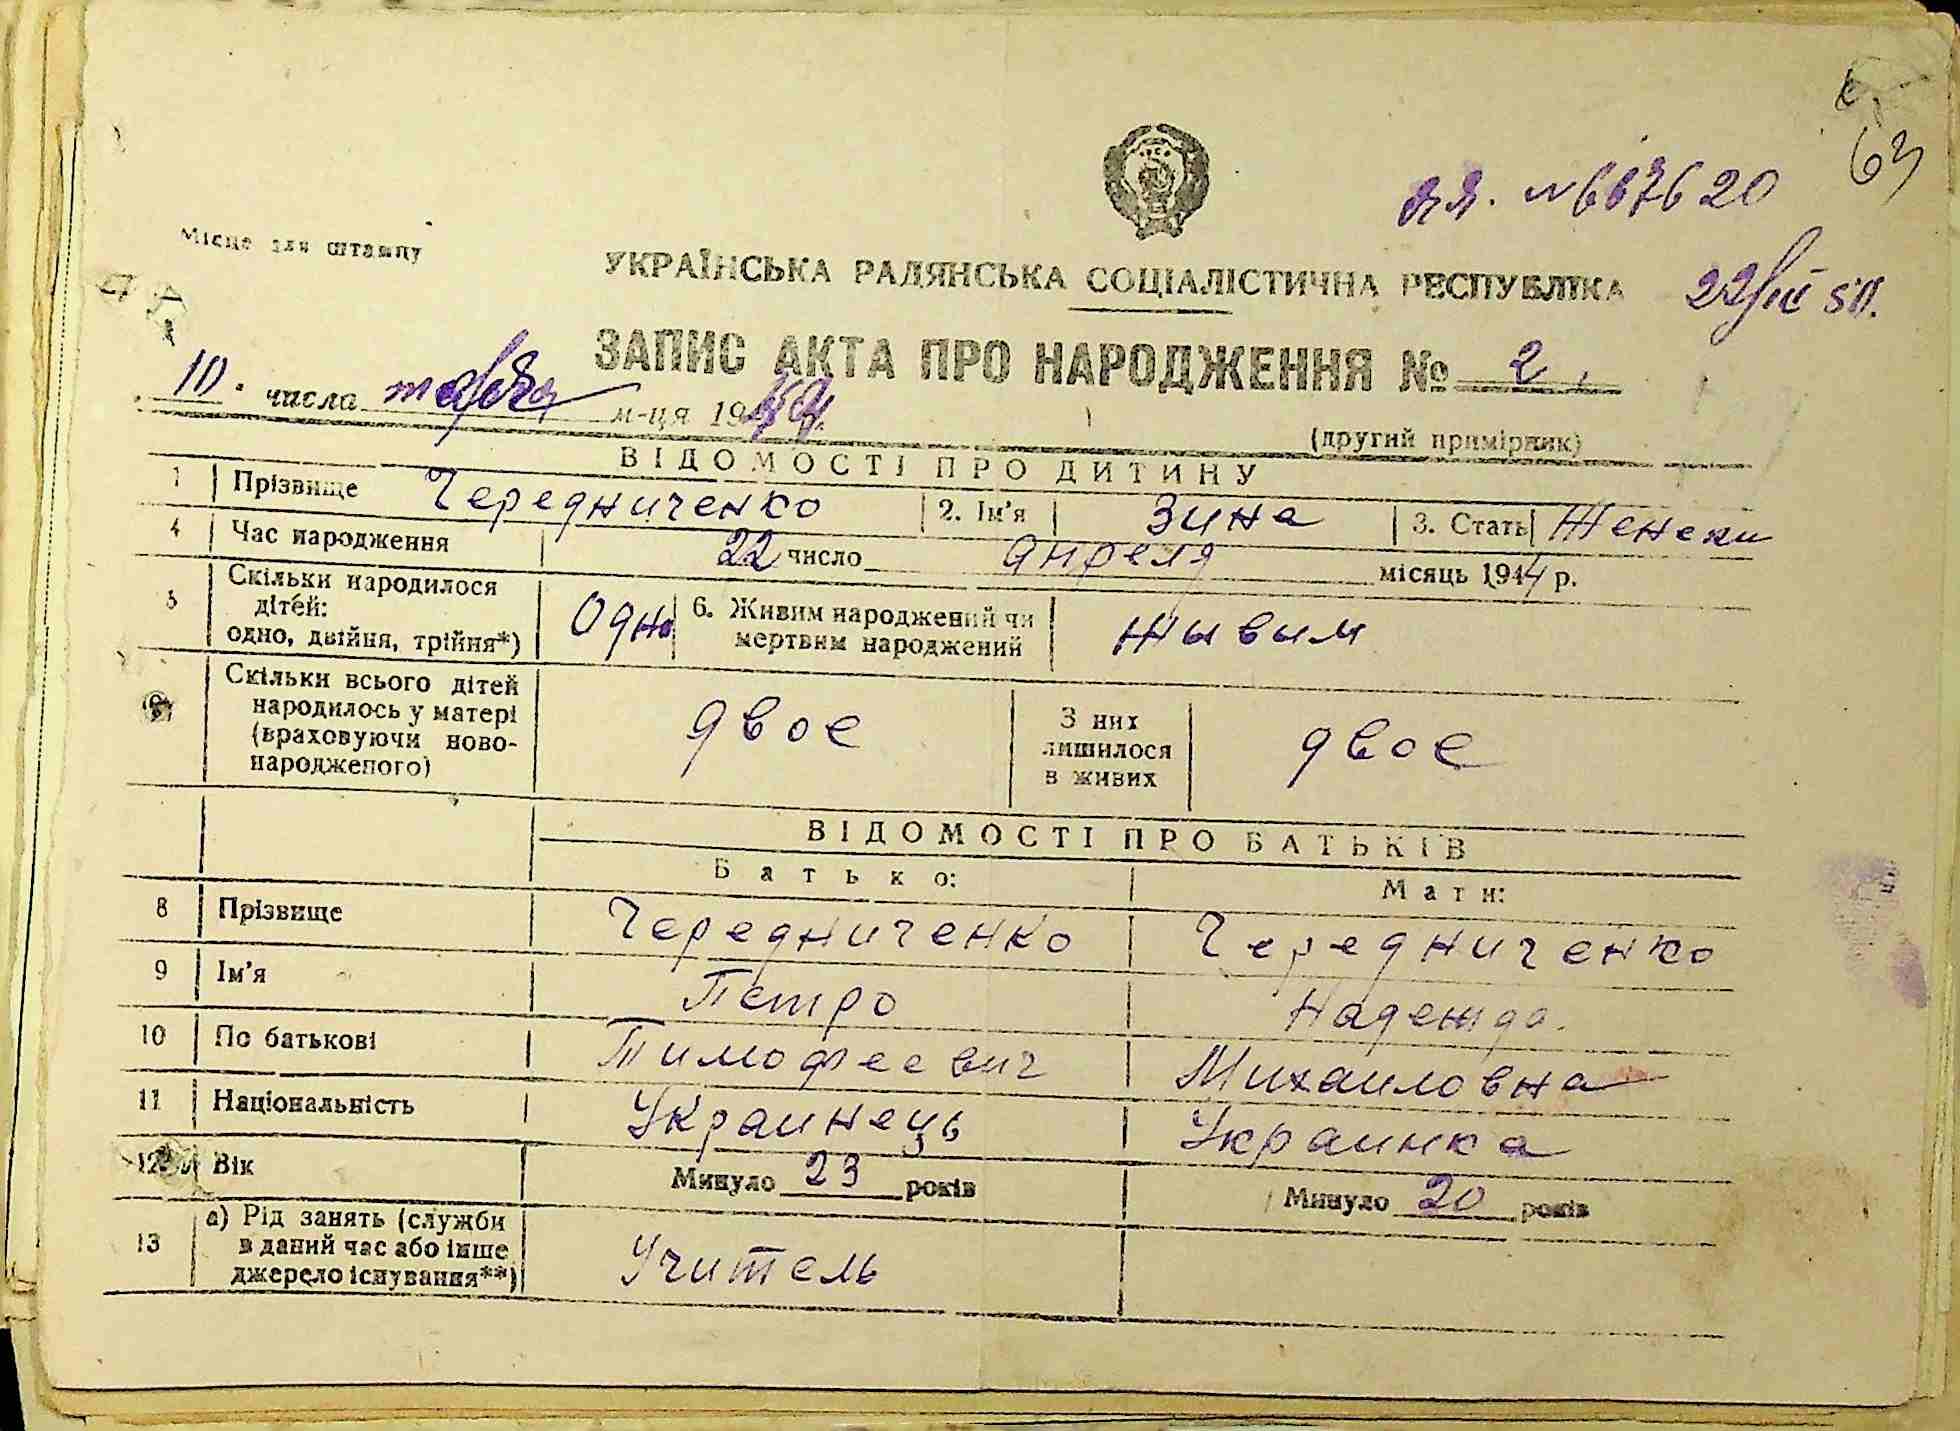 63
ЯЯ. № 667620
Місце для штампу
УКРАЇНСЬКА РАДЯНСЬКА СОЦІАЛІСТИЧНА РЕСПУБЛІКА
50.
ЗАПИС АКТА ПРО НАРОДЖЕННЯ № 2.
10. числа марта м-ця 19
(другий примірник)
ВІДОМОСТІ ПРО ДИТИНУ
1 Прізвище Чередниченко 2. Ім'я Зина 3. Стать Женски
4 Час народження 22 число апреля місяць 1944 р.
5 Скільки народилося дітей: одно, двійня, трійня*) Одно 6. Живим народжений чи мертвим народжений жывим
Скільки всього дітей народилось у матері (враховуючи новонародженого) двое З них лишилося в живих двое
ВІДОМОСТІ ПРО БАТЬКІВ
Батько: Мати:
8 Прізвище Чередниченко Чередниченко
9 Ім'я Петро Надежда.
10 По батькові Тимофеевич Михаиловна
11 Національність Украинець Украинка
12 Вік Минуло 23 років Минуло 20 років
13 а) Рід занять (служби в даний час або інше джерело існування**) Учитель